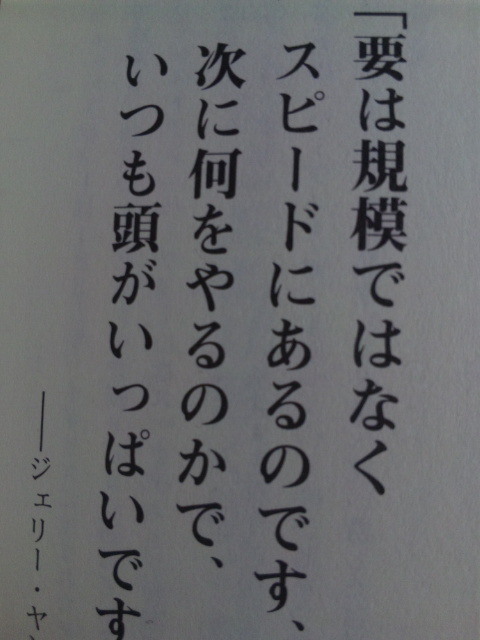 「要は規模ではなく
スピードにあるのです、
次に何をやるのかで、
いつも頭がいっぱいです
──ジェリー・ヤン